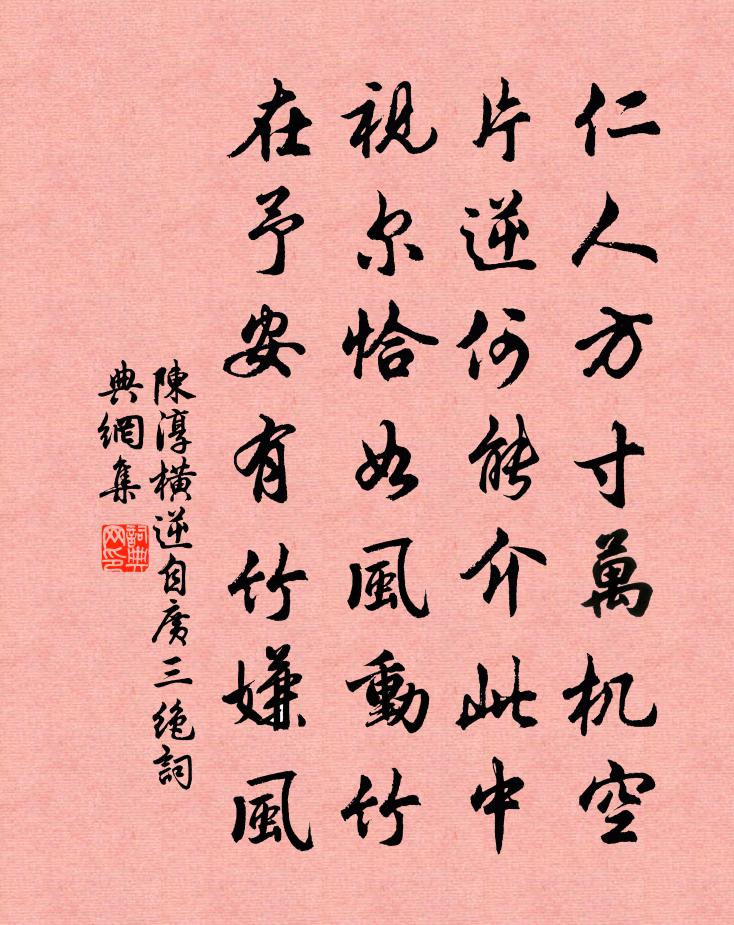 仁人方寸萬机空
片逆何能介此中
視尔恰如風動竹
在予安有竹嫌風
陳淳橫逆自廣三絶詞
典網集
詞典网印